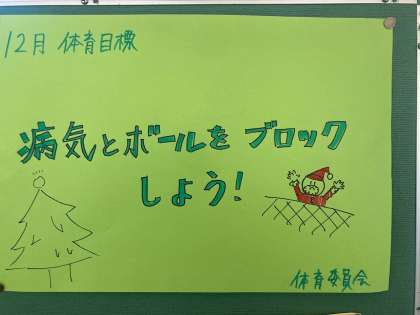 12月 体育目標
病気とボールを ブロック
しよう!
体育委員会